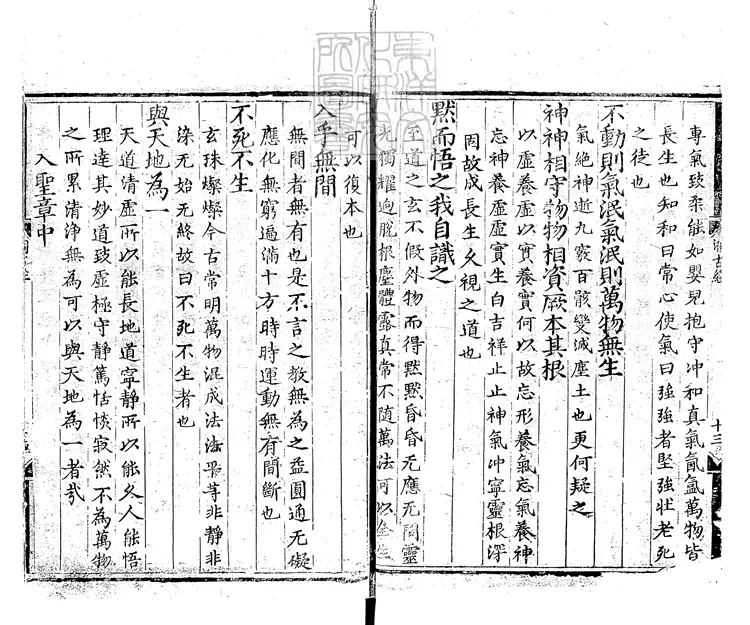 專氣致柔能如嬰兒抱守冲和真氣氤氳萬物皆
長生也知和曰常心使氣曰強強者堅強壯老死
之徒也
不動則氣泯氣泯則萬物無生
氣絶神逝九竅百骸變滅塵土也更何疑之
神神相守物物相資厥本其根
以虛養虛以實養實何以故忘形養氣忘氣養神
忘神養虛虛實生白吉祥止止神氣冲寧靈根深
固故成長生久視之道也
黙而悟之我自識之
至道之玄不假外物而得黙黙昏昏无應无問靈
光獨耀逈脫根塵體露真常不隨萬法可以全生
可以復本也
入乎無間
無間者無有也是不言之教無為之益圓通无礙
應化無窮遍滿十方時時運動無有間斷也
不死不生
玄珠燦燦今古常明萬物混成法法平等非静非
染无始无終故曰不死不生者也
與天地為一
天道清虛所以能長地道寧静所以能久人能悟
理達其妙道致虛極守静篤恬惔寂然不為萬物
之所累清浄無為可以與天地為一者㢤
入聖章中
十三